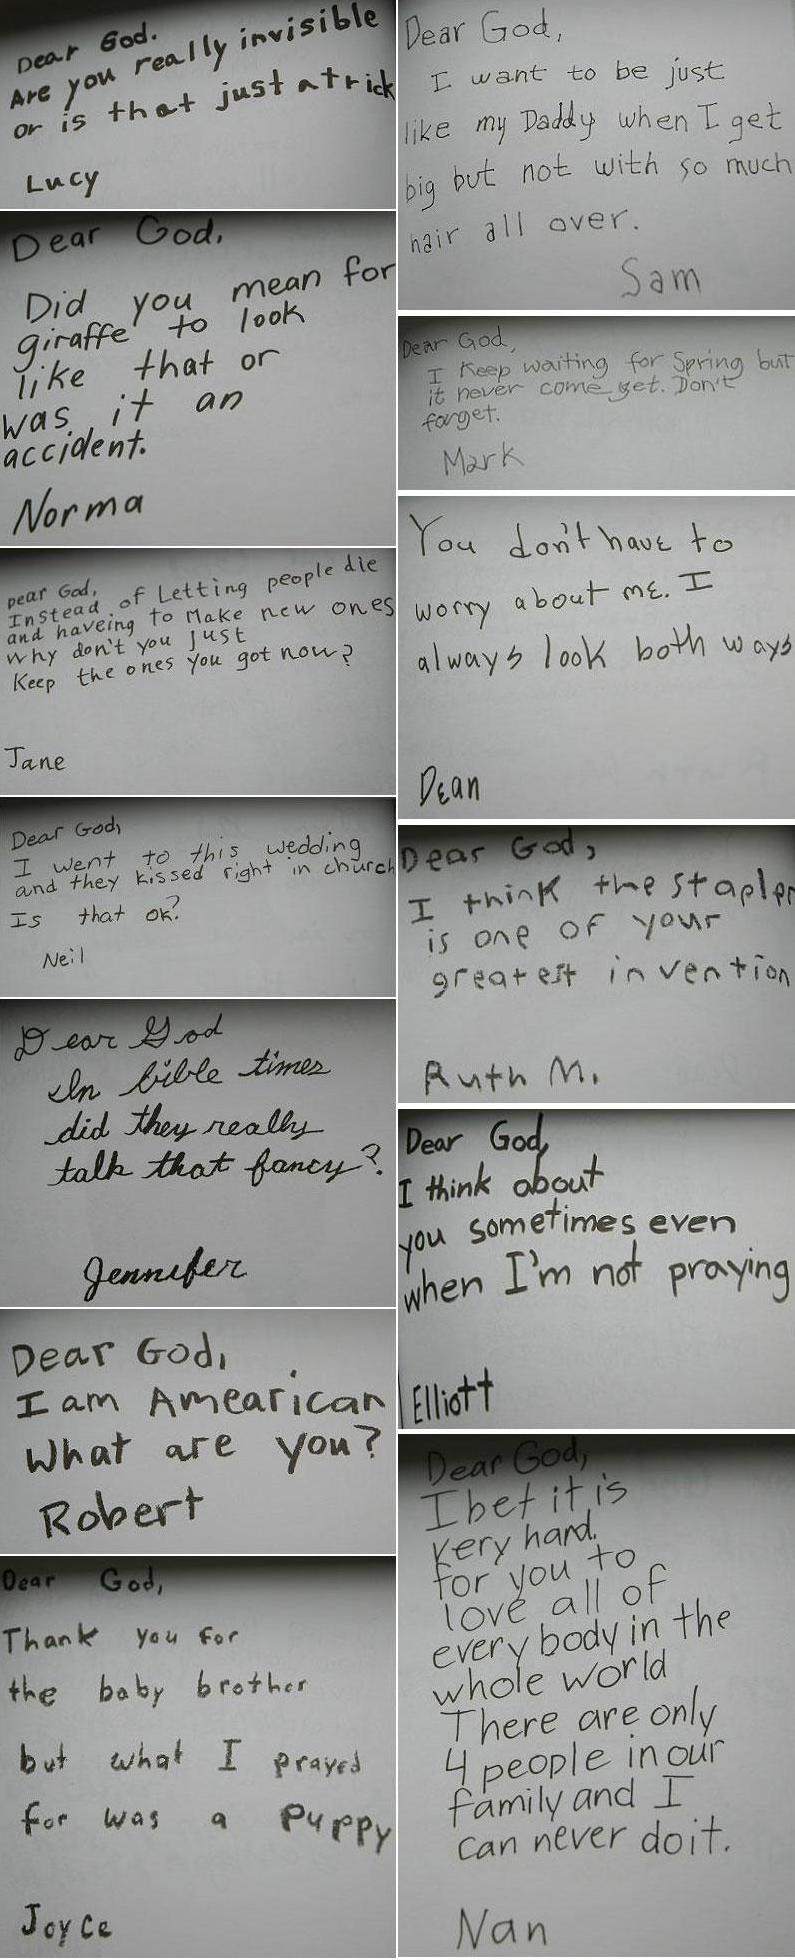 Dear God.
Are you really invisible
or is that just a trick
Lucy
Dear God,
Did you mean for
giraffe to look
like that or
was it an
accident.
Norma
Dear God,
Instead of Letting people die
and haveing to Make new ones
why don't you Just
Keep the ones you got now?
Jane
Dear God,
I went to this wedding
and they kissed right in church
Is that ok?
Neil
Dear God
In bible times
did they really
talk that fancy?
Jennifer
Dear God,
I am Amearican
What are you?
Robert
Dear God,
Thank you for
the baby brother
but what I prayed
for was a puppy
Joyce
Dear God,
I want to be just
like my Daddy when I get
big but not with so much
hair all over.
Sam
Dear God,
I Keep waiting for Spring but
it never come yet. Don't
forget.
Mark
You don't have to
worry about me. I
always look both ways
Dean
Dear God,
I think the stapler
is one of your
greatest invention
Ruth M.
Dear God,
I think about
you sometimes even
when I'm not praying
Elliott
Dear God,
I bet it is
very hard.
for you to
love all of
every body in the
whole world
There are only
4 people in our
family and I
can never do it.
Nan